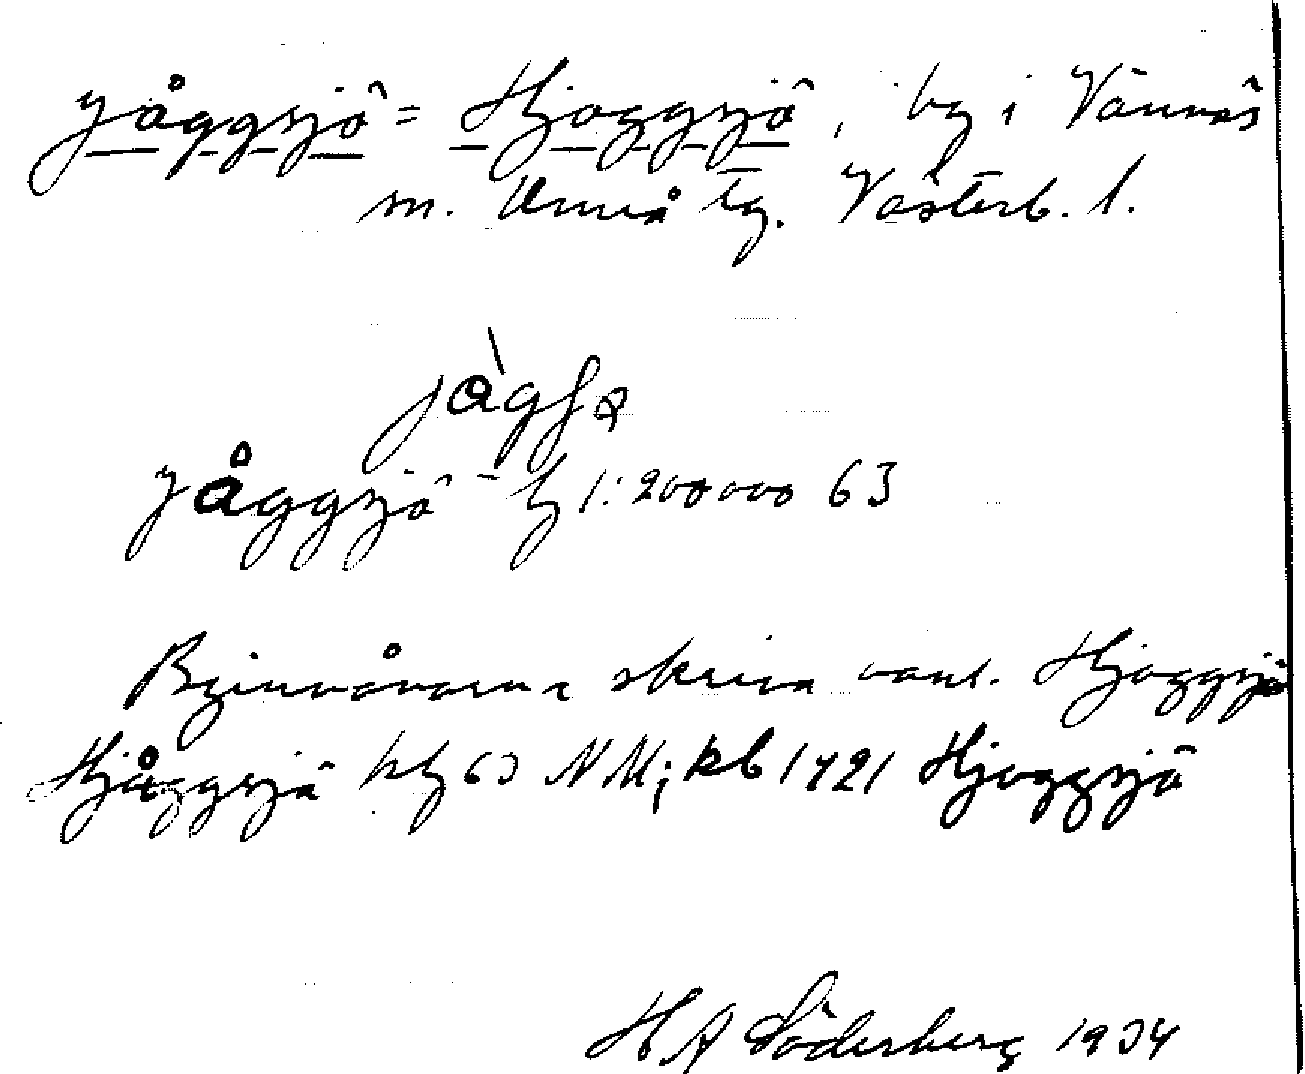 Jåggsjö = Hjoggsjö, by i Vännäs
sn. Umeå tg. Västerb. l.
Jåggsjö – 1:200000 63
Byinvånarna skriva vanl. Hjoggsjö
Hjåggsjö 63 NM; kb 1721 Hjoggsjö
H A Söderberg 1934